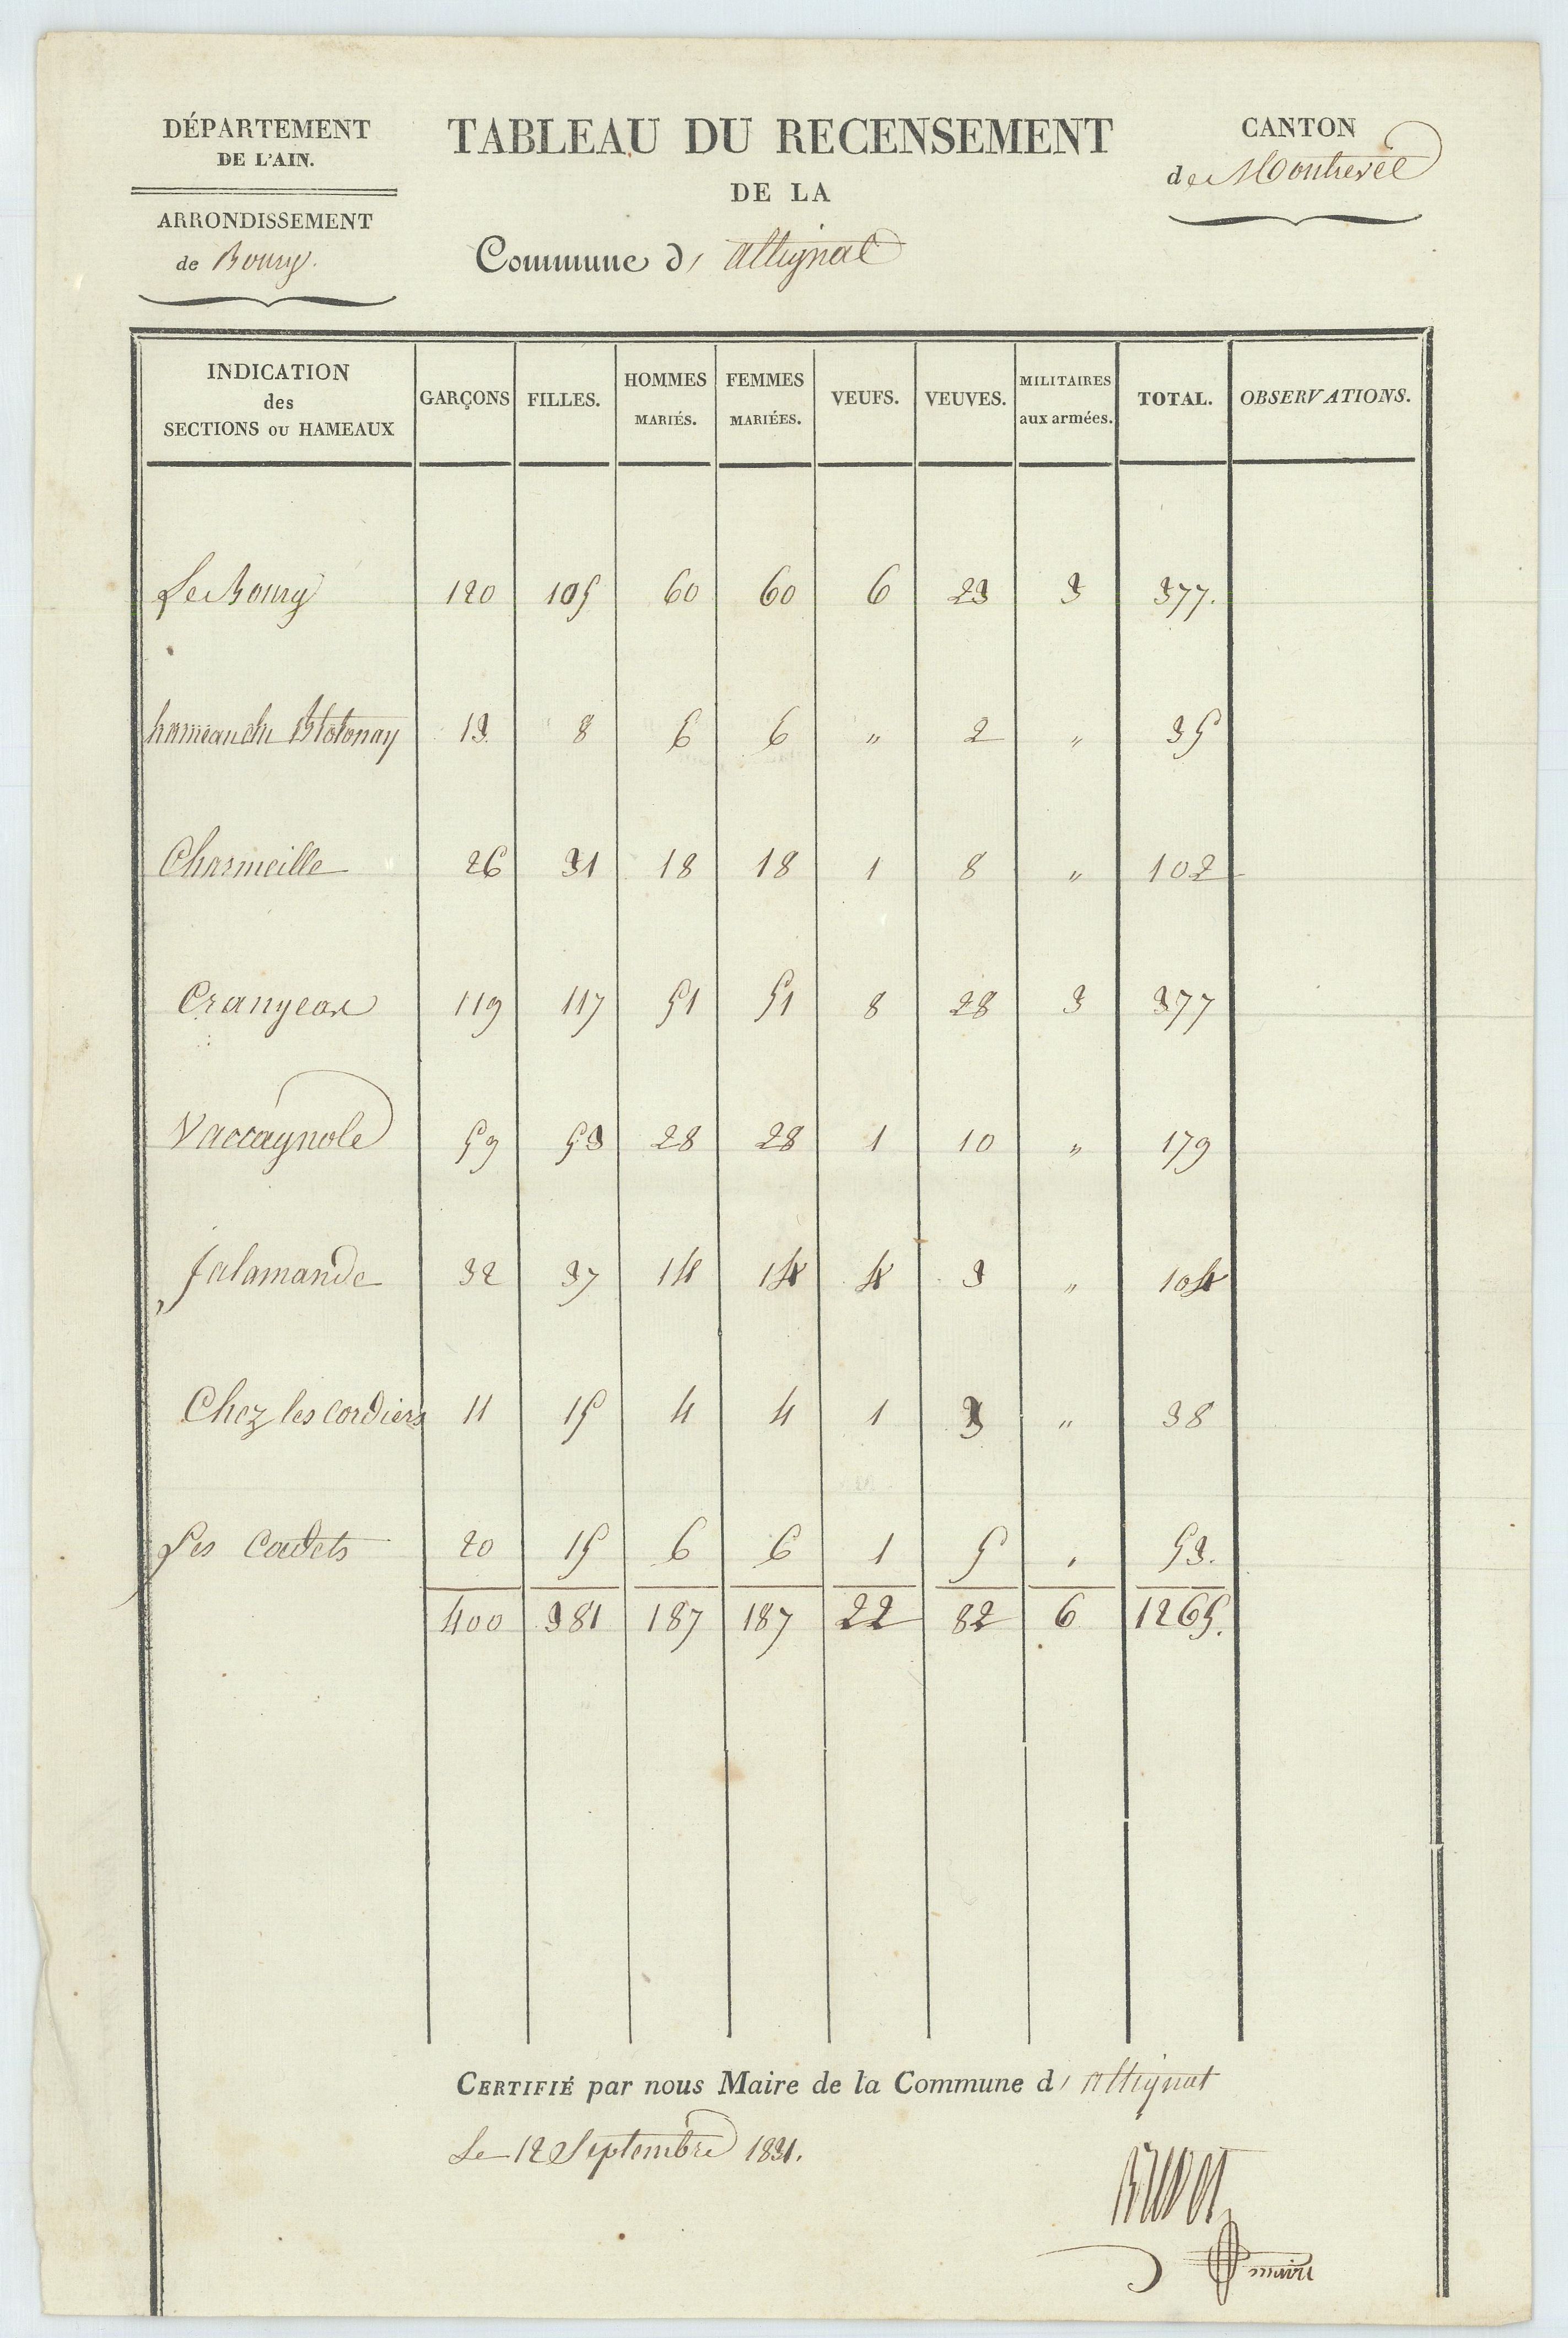 DÉPARTEMENT
DE L'AIN.
ARRONDISSEMENT
de Bourg.
TABLEAU DU RECENSEMENT
DE LA
Commune d' attignat
CANTON
de Montrevel
INDICATION
des
SECTIONS OU HAMEAUX
GARÇONS
FILLES.
HOMMES
MARIÉS.
FEMMES
MARIÉES.
VEUFS.
VEUVES.
MILITAIRES
aux armées.
TOTAL.
OBSERVATIONS.
Le Bourg 120 105 60 60 6 23 3 377.
hameau du Blotonay 13 8 6 6 " 2 " 35
Charmeille 26 31 18 18 1 8 " 102
Crangeac 119 117 51 51 8 28 3 377
Vaccagnole 59 53 28 28 1 10 " 179
Salamande 32 37 14 14 4 3 " 104
Chez les cordiers 11 15 4 4 1 3 " 38
Les Cadets 20 15 6 6 1 5 " 53.
400 381 187 187 22 82 6 1265.
CERTIFIÉ par nous Maire de la Commune d' Attignat
Le 12 Septembre 1831.
maire